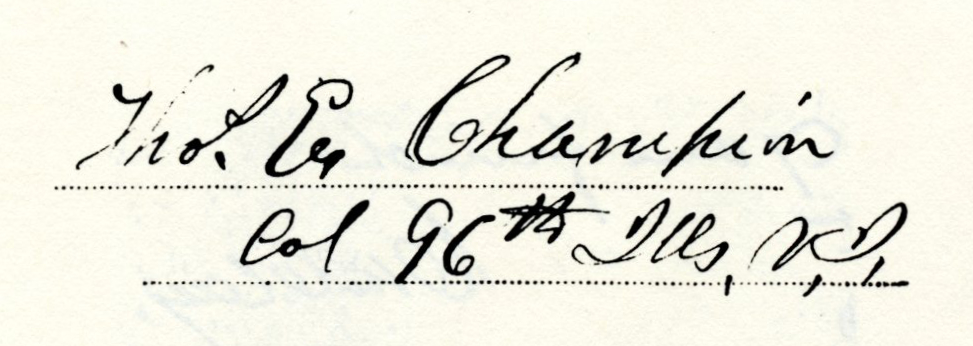 Thos. E. Champion
Col 96th Ills, V, I,